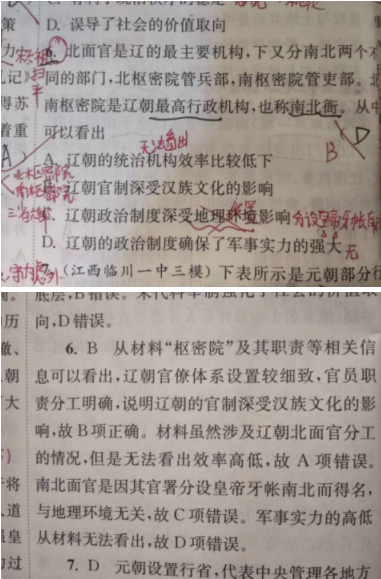 D. 误导了社会的价值取向
6. 北面官是辽的最主要机构,下又分南北两个不
同的部门,北枢密院管兵部,南枢密院管吏部。北
南枢密院是辽朝最高行政机构,也称南北衙。从中
可以看出
A. 辽朝的统治机构效率比较低下
B. 辽朝官制深受汉族文化的影响
C. 辽朝政治制度深受地理环境影响
D. 辽朝的政治制度确保了军事实力的强大
7. (江西临川一中三模)下表所示是元朝部分行
策
力
记》
得苏
着重
A
无法看出
B
D
北枢密院
南枢密院
三省六部
分设皇帝牙帐南
无
向,D错误。
6. B 从材料“枢密院”及其职责等相关信
息可以看出,辽朝官僚体系设置较细致,官员职
责分工明确,说明辽朝的官制深受汉族文化的影
响,故 B 项正确。材料虽然涉及辽朝北面官分工
的情况,但是无法看出效率高低,故 A 项错误。
南北面官是因其官署分设皇帝牙帐南北而得名,
与地理环境无关,故 C 项错误。军事实力的高低
从材料无法看出,故 D 项错误。
7. D 元朝设置行省,代表中央管理各地方